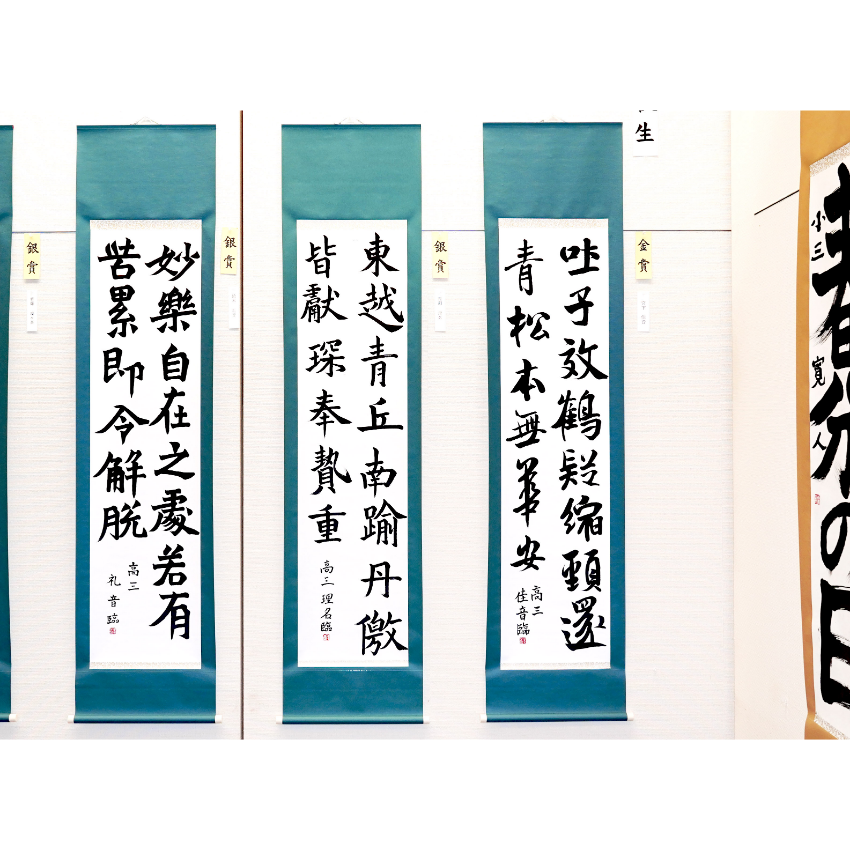 春分の日
小三
寛人
生
金賞
吐子效鶴疑縮頸還
青松本無華安
高三
佳音臨
銀賞
東越青丘南踰丹徼
皆獻琛奉贄重
高三理名臨
銀賞
妙樂自在之處若有
苦累即令解脱
高三
礼音臨
銀賞